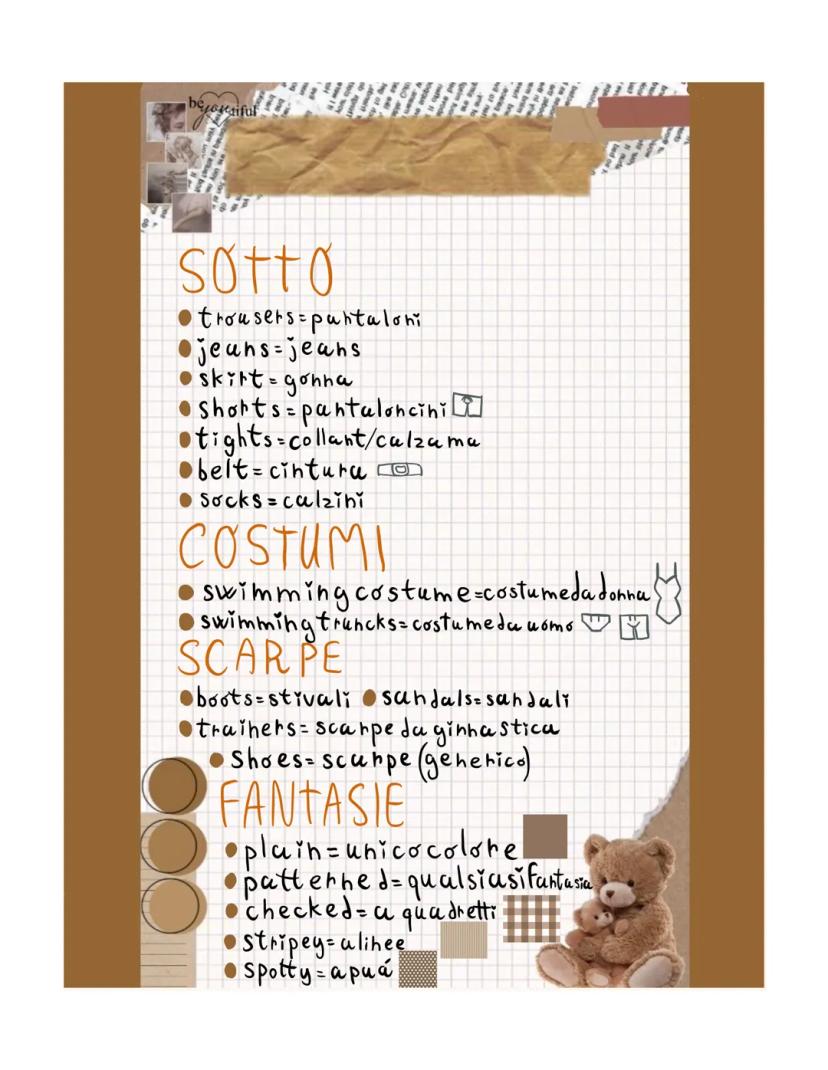 be you tiful
SOTTO
trousers=pantaloni
jeans=jeans
skirt=gonna
shorts=pantaloncini
tights=collant/calzama
belt=cintura
socks=calzini
COSTUMI
swimming costume=costume da donna
swimming truncks=costume da uomo
SCARPE
boots=stivali sandals=sandali
trainers=scarpe da ginnastica
Shoes=scarpe (generico)
FANTASIE
plain=unicocolore
patterned=qualsiasi fantasia
checked=a quadretti
stripey=a linee
spotty=a puá